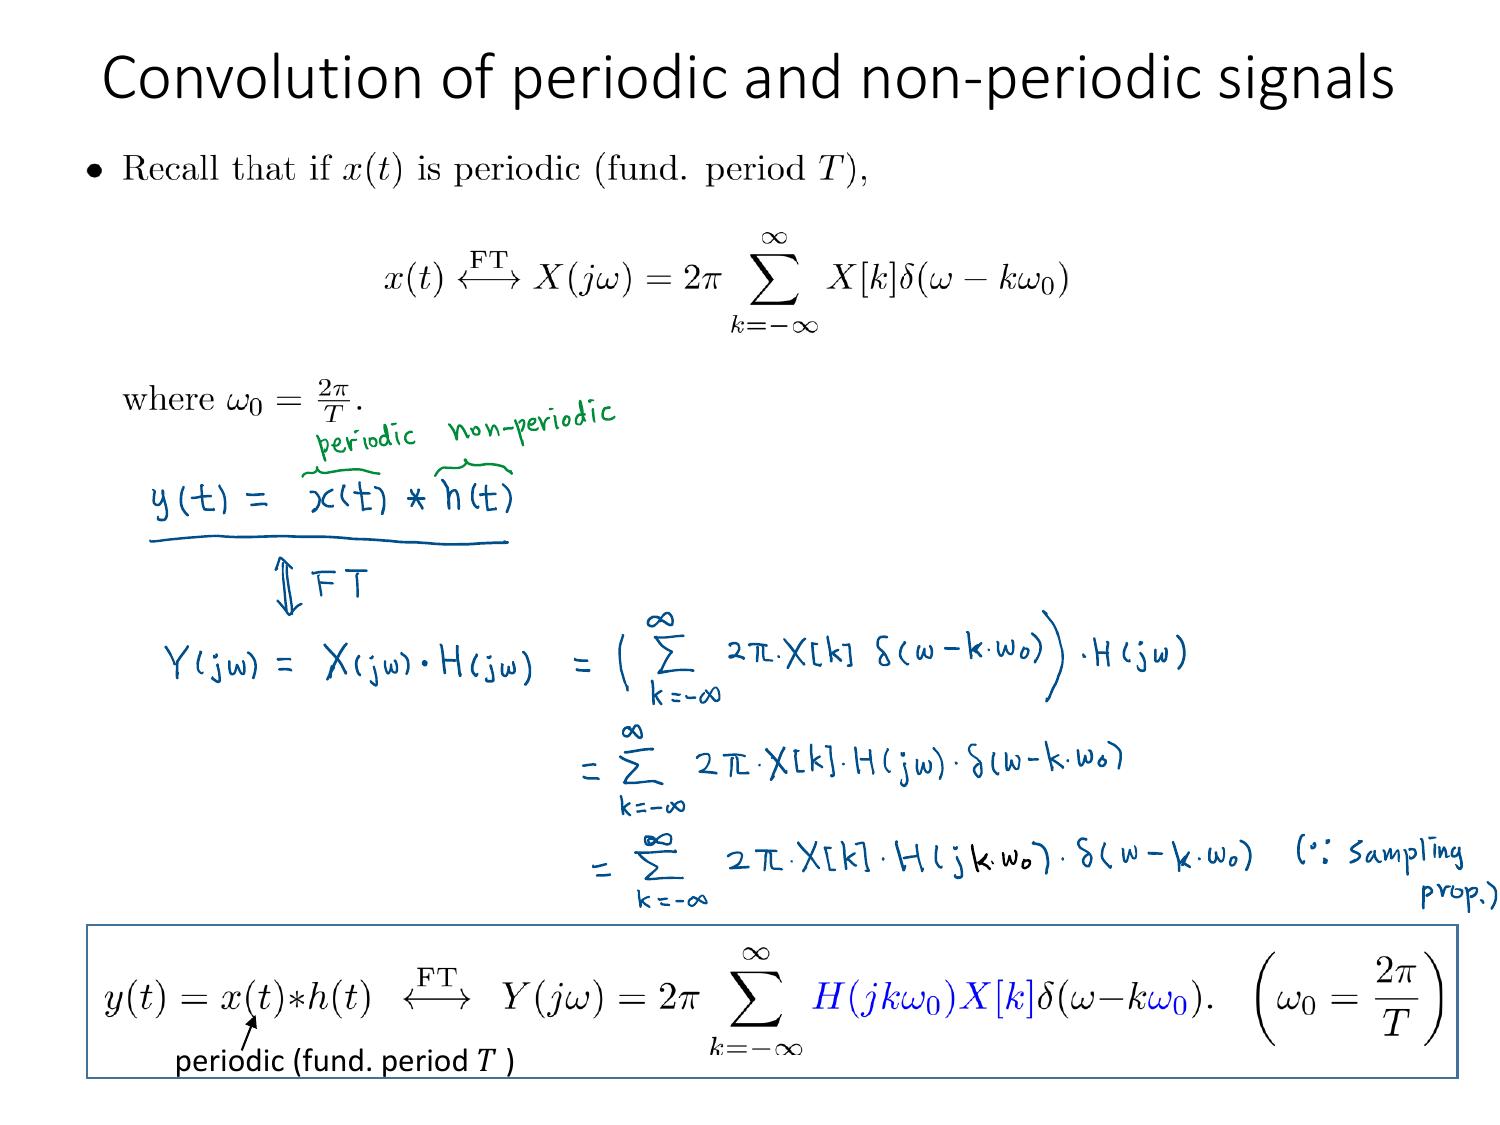 Convolution of periodic and non-periodic signals
• Recall that if x(t) is periodic (fund. period T),
x(t) ⟷^{FT} X(jω) = 2π ∑_{k=−∞}^{∞} X[k]δ(ω − kω₀)
where ω₀ = 2π/T.
periodic non-periodic
y(t) = x(t) * h(t)
⇕ FT
Y(jω) = X(jω)·H(jω) = (∑_{k=−∞}^{∞} 2π·X[k] δ(ω−k·ω₀))·H(jω)
= ∑_{k=−∞}^{∞} 2π·X[k]·H(jω)·δ(ω−k·ω₀)
= ∑_{k=−∞}^{∞} 2π·X[k]·H(jk·ω₀)·δ(ω−k·ω₀) (∵ sampling
prop.)
y(t) = x(t)∗h(t) ⟷^{FT} Y(jω) = 2π ∑_{k=−∞}^{∞} H(jkω₀)X[k]δ(ω−kω₀). (ω₀ = 2π/T)
periodic (fund. period T )